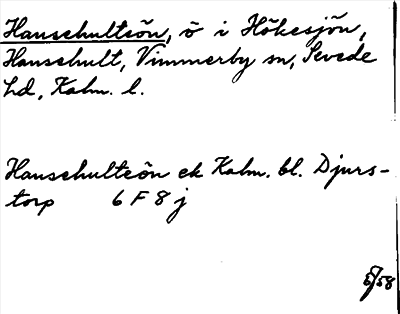 Hanschultsön, ö i Hökesjön,
Hanschult, Vimmerby sn, Sevede
hd, Kalm. l.
Hanschultsön ek Kalm. bl. Djurs-
torp 6 F 8 j
5/58